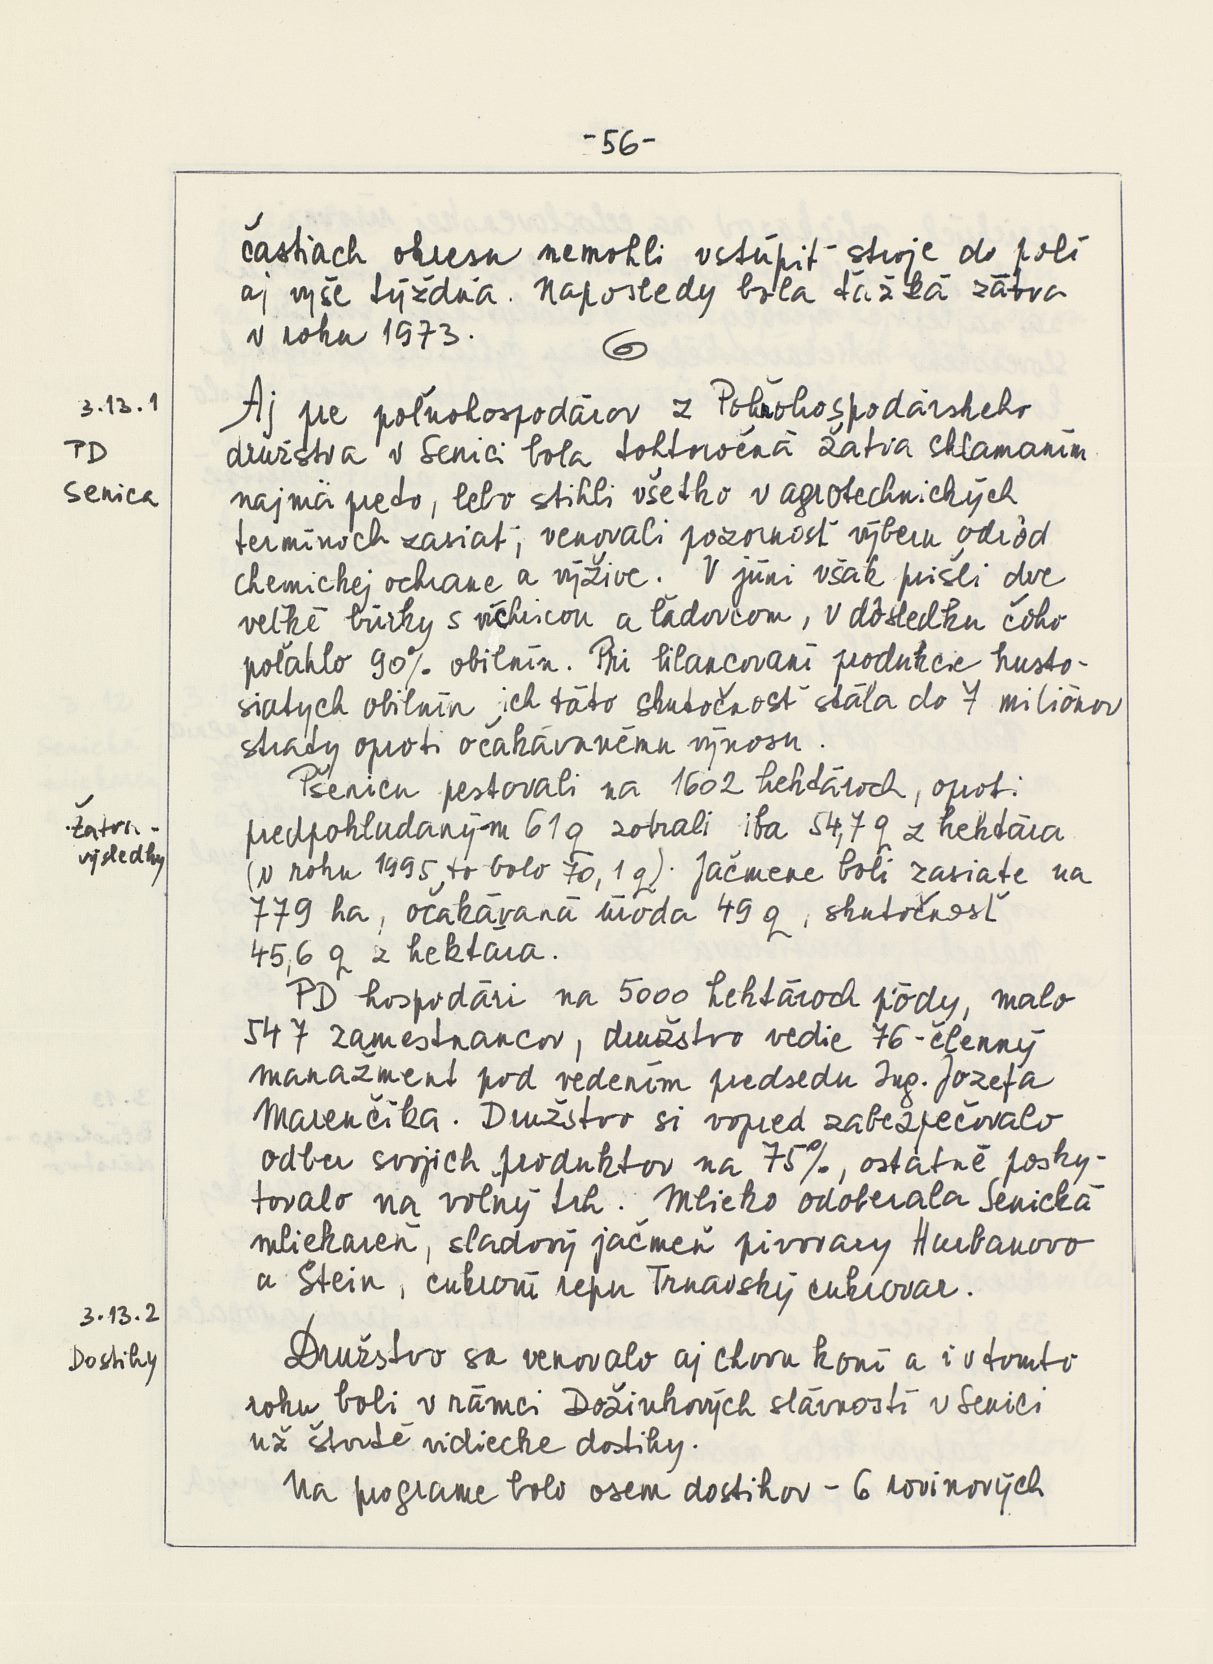 -56-
častiach okresu nemohli vstúpiť stroje do polí
aj vyše týždňa. Naposledy bola ťažká žatva
v roku 1973.
3.13.1
PD
Senica
Aj pre poľnohospodárov z Poľnohospodárskeho
družstva v Senici bola tohtoročná žatva sklamaním
najmä preto, lebo stihli všetko v agrotechnických
termínoch zasiať, venovali pozornosť výberu odrôd
chemickej ochrane a výžive. V júni však prišli dve
veľké búrky s víchricou a ľadovcom, v dôsledku čoho
poľahlo 90% obilnín. Pri bilancovaní produkcie husto-
siatych obilnín ich táto skutočnosť stála do 7 miliónov
straty oproti očakávanému výnosu.
Žatva -
výsledky
Pšenicu pestovali na 1602 hektároch, oproti
predpokladaným 61 q zobrali iba 54,7 q z hektára
(v roku 1995 to bolo 70,1 q). Jačmene boli zasiate na
779 ha, očakávaná úroda 49 q, skutočnosť
45,6 q z hektára.
PD hospodári na 5000 hektároch pôdy, malo
547 zamestnancov, družstvo vedie 76-členný
manažment pod vedením predsedu Ing. Jozefa
Marenčíka. Družstvo si vopred zabezpečovalo
odber svojich produktov na 75%, ostatné posky-
tovalo na voľný trh. Mlieko odoberala Senická
mliekareň, sladový jačmeň pivovary Hurbanovo
a Stein, cukrovú repu Trnavský cukrovar.
3.13.2
Dostihy
Družstvo sa venovalo aj chovu koní a i v tomto
roku boli v rámci Dožinkových slávností v Senici
už štvrté vidiecke dostihy.
Na programe bolo osem dostihov - 6 rovinových